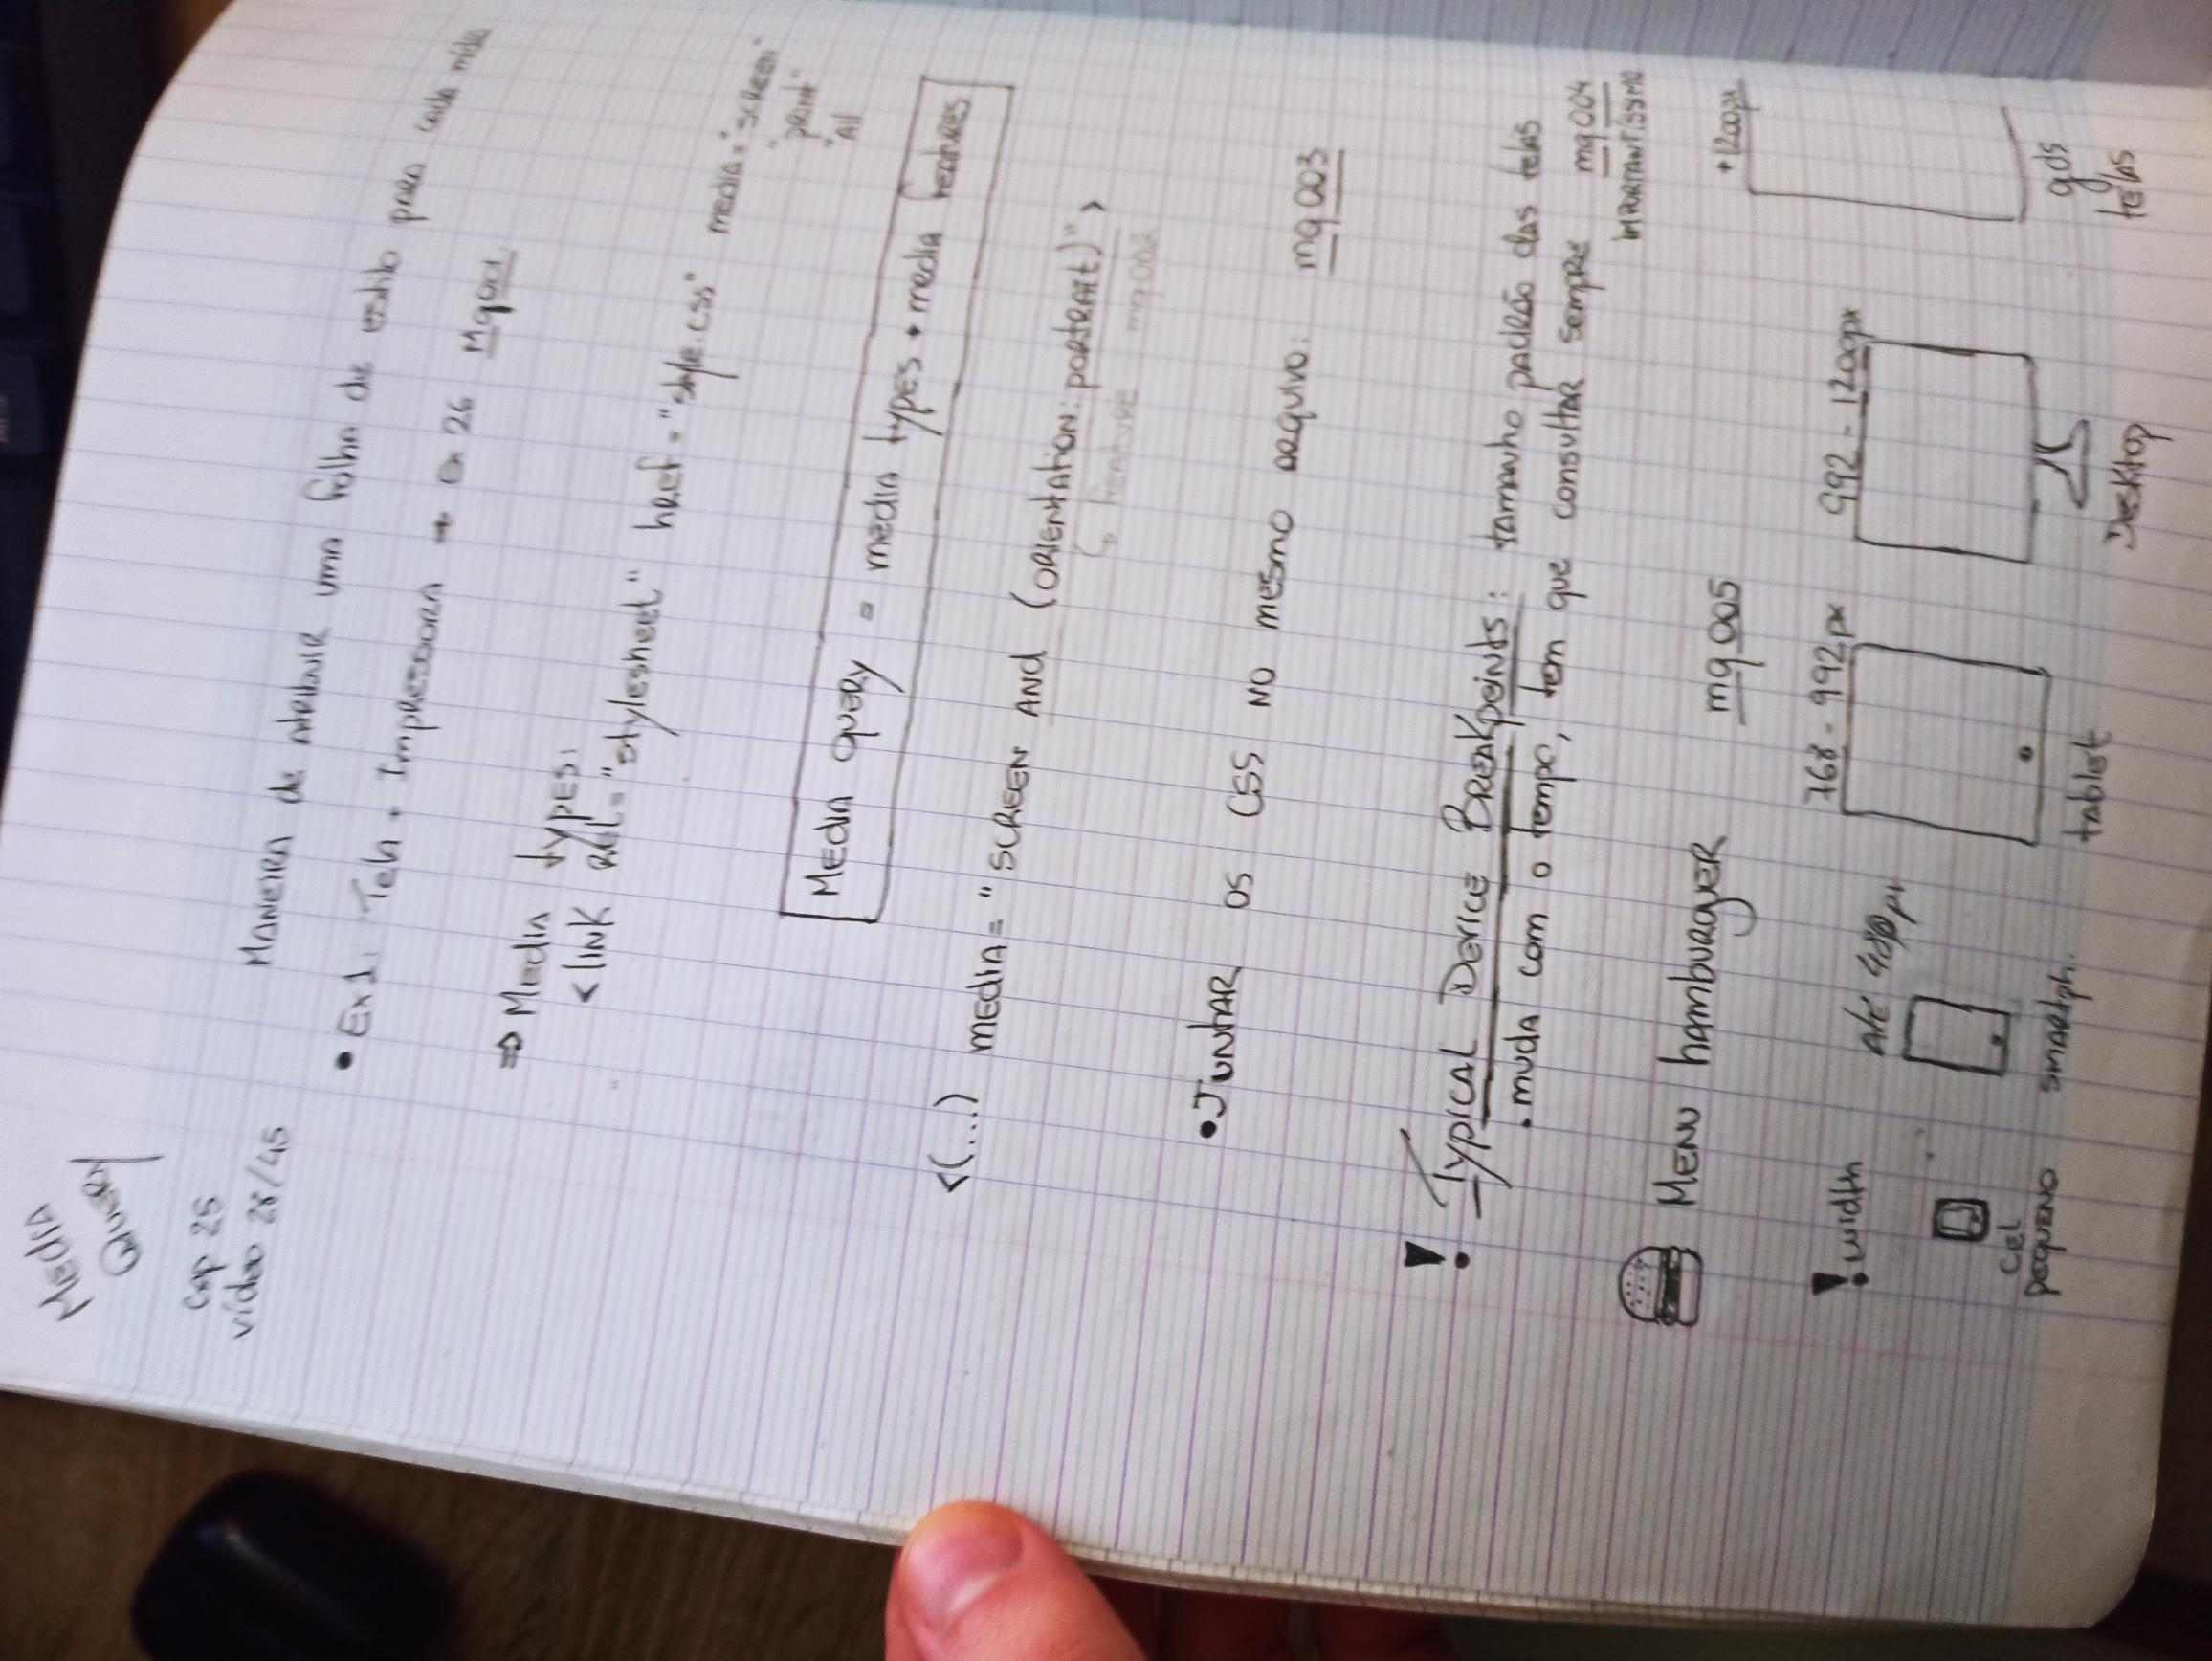 MEDIA
QUERY
Cap 25
vídeo 28/45
MANEIRA de atribuir uma folha de estilo para cada mídia
• Ex1: Tela + Impressora → Ex 26 Mq001
⇒ Media types:
<link rel="stylesheet" href="style.css" media="screen"
"print"
"All
Media query = media types + media features
<(...) media="screen and (orientation: portrait)">
↳ feature mq002
• Juntar os CSS no mesmo arquivo: mq003
! Typical Device Breakpoints: tamanho padrão das telas
. muda com o tempo, tem que consultar sempre mq004
IMPORTANTÍSSIMO
Menu hamburguer mq005
+1200px
! width
Até 480px
768 - 992px
992 - 1200px
cel
pequeno
smartph.
tablet
Desktop
gds
telas